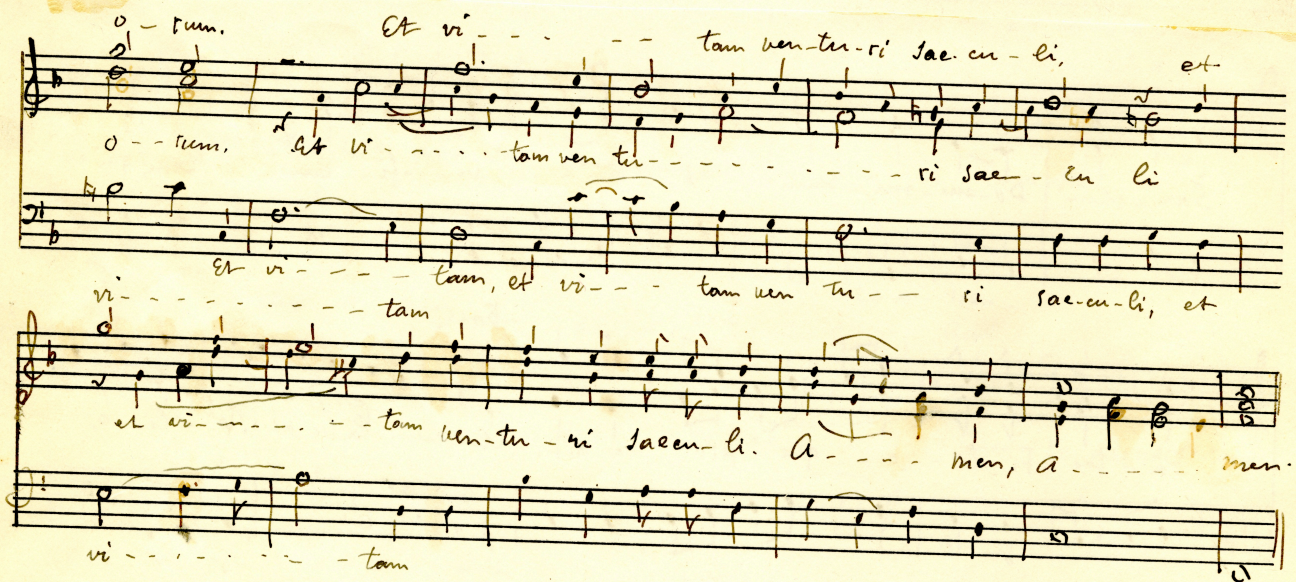 o - rum. Et vi - - - - - - tam ven-tu-ri sae-cu-li, et
o - - rum. Et vi - - - - - - tam ven tu - - - - - - - - - - ri sae - cu li
Et vi - - - - tam, et vi - - - tam ven tu - - ri sae-cu-li, et
vi - - - - - - - - - tam
et vi - - - - - - - tam ven-tu-ri saecu-li. A - - - - men, A - - - - - - men.
vi - - - - - - - tam